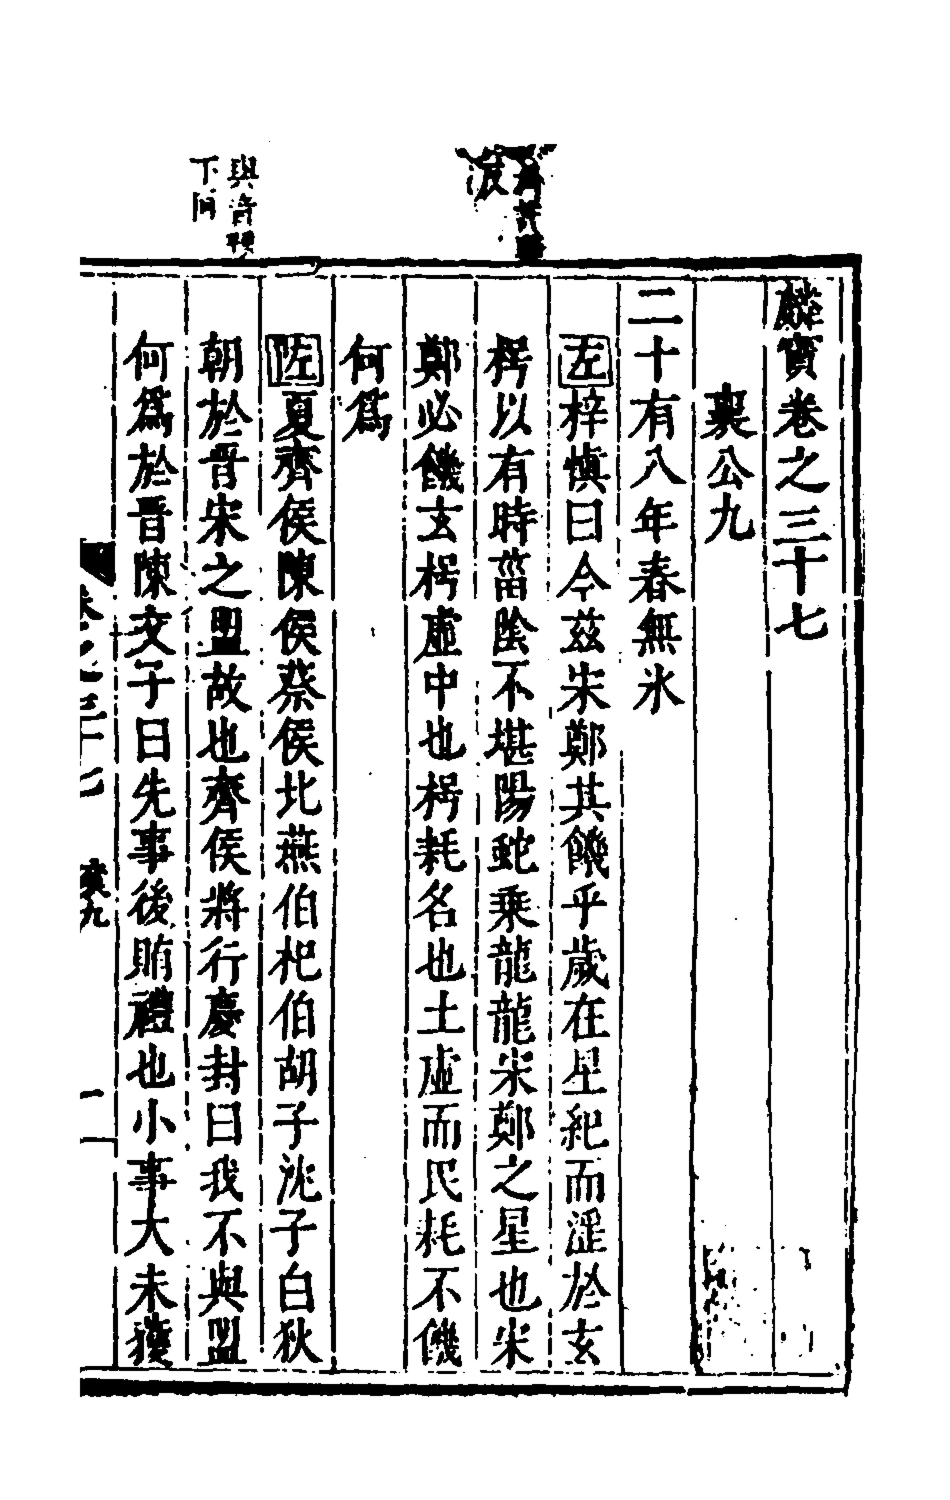 麟寶卷之三十七
襄公九
二十有八年春無氷
左梓慎曰今茲宋鄭其饑乎歲在星紀而淫於玄
枵以有時菑陰不堪陽蛇乘龍龍宋鄭之星也宋
鄭必饑玄枵虛中也枵耗名也土虛而民耗不饑
何爲
左夏齊侯陳侯蔡侯北燕伯杞伯胡子沈子白狄
朝於晋宋之盟故也齊侯將行慶封曰我不與盟
何爲於晋陳文子曰先事後賄禮也小事大未獲
與音預
下同
卷之三十七 襄九 一